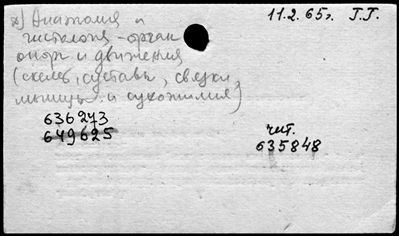 а) Анатомия и
гистология орган
опор и движения
(скелет, суставы, связки,
мышцы и сухожилия)
11.2.65г. Г.Г.
636273
649625
чит.
635848